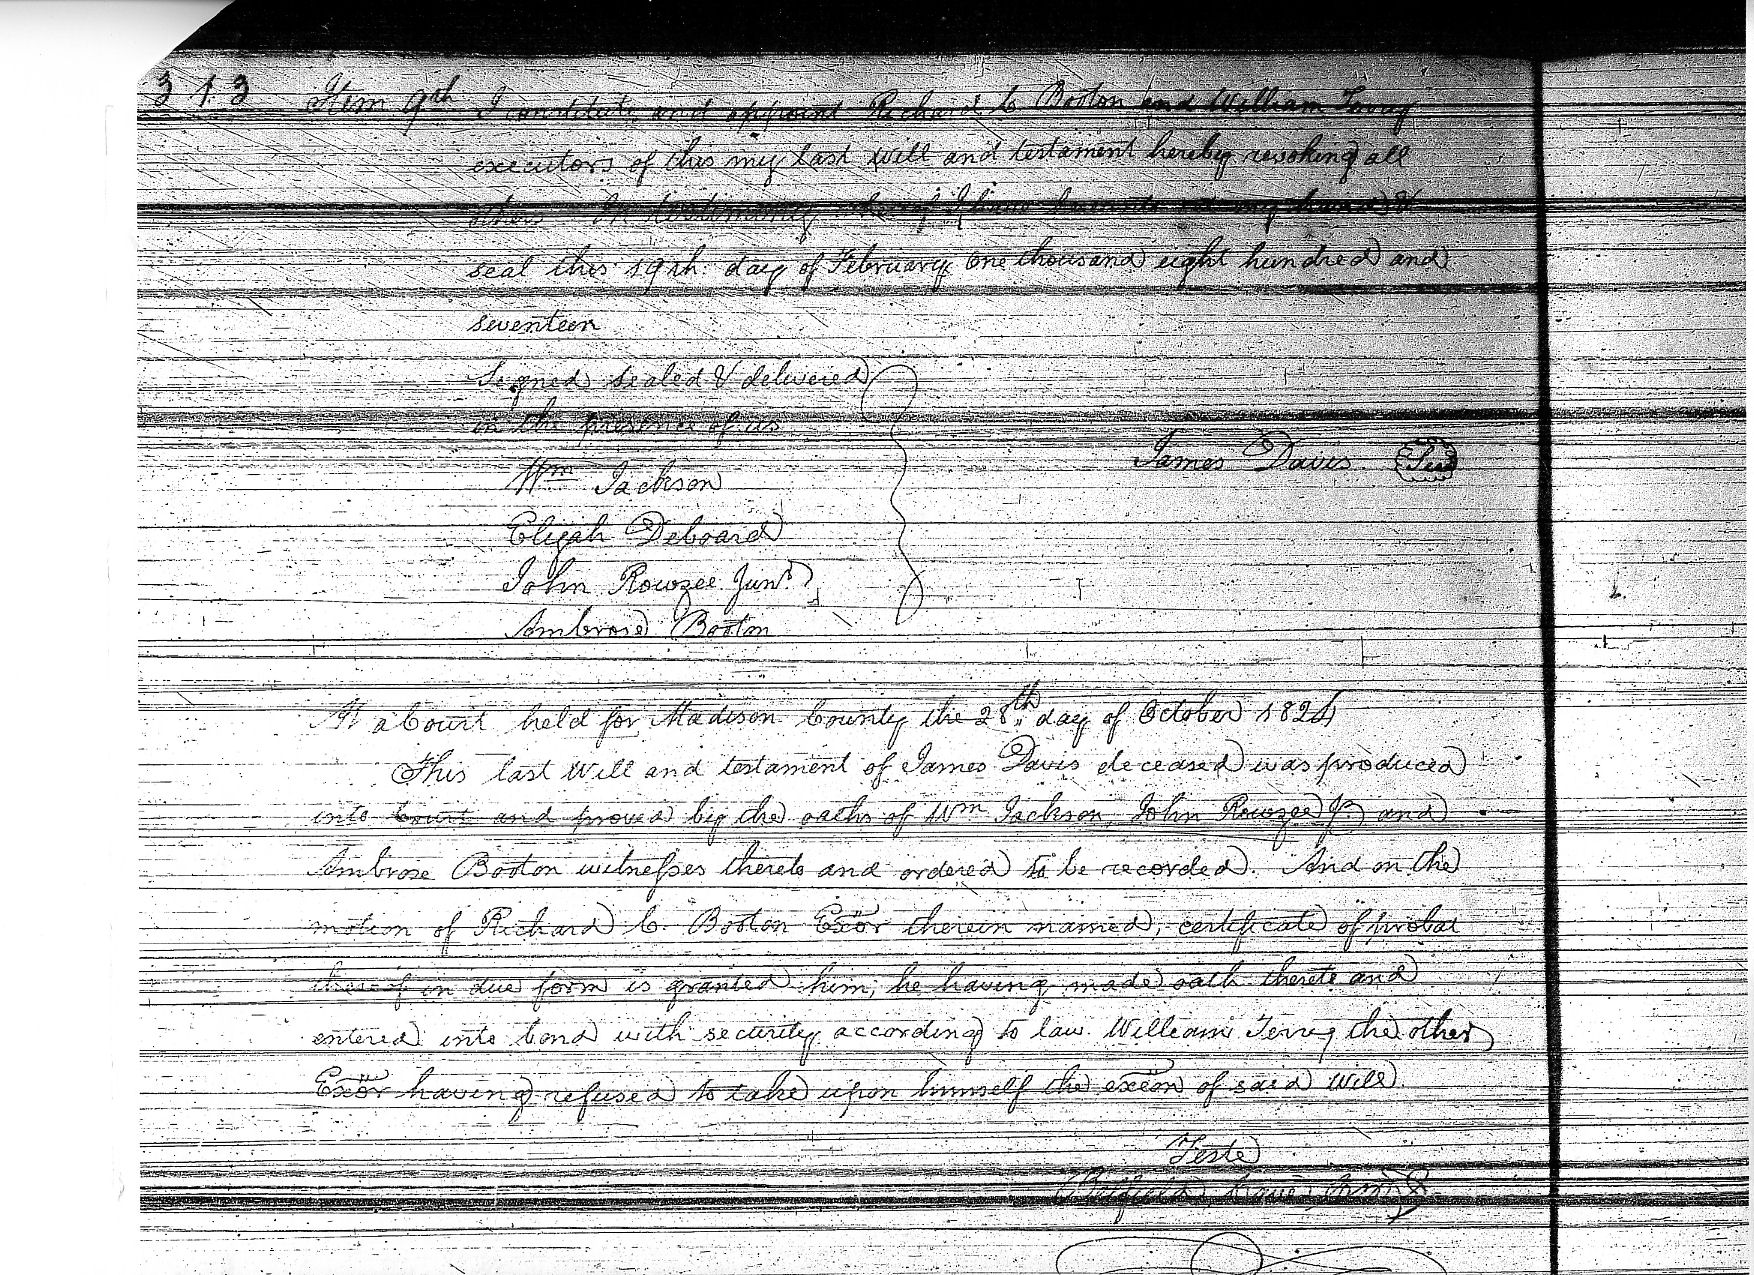 313 Item 9th I constitute and appoint Richard C Booton and William Terry
executors of this my last will and testament hereby revoking all
others In testimony whereof I have hereunto set my hand &
seal this 19th day of February one thousand eight hundred and
seventeen
Signed sealed & delivered
in the presence of us
James Davis Seal
Wm Jackson
Elijah Deboard
John Rowzee Junr
Ambrose Booton
At a Court held for Madison County the 28th day of October 1824
This last Will and testament of James Davis deceased was produced
into Court and proved by the oaths of Wm Jackson, John Rowzee Jr and
Ambrose Booton witnesses thereto and ordered to be recorded. And on the
motion of Richard C. Booton Exor therein named, certificate of probat
thereof in due form is granted him, he having made oath thereto and
entered into bond with security according to law William Terry the other
Exor having refused to take upon himself the exeon of said will.
Teste
Belfield Cave